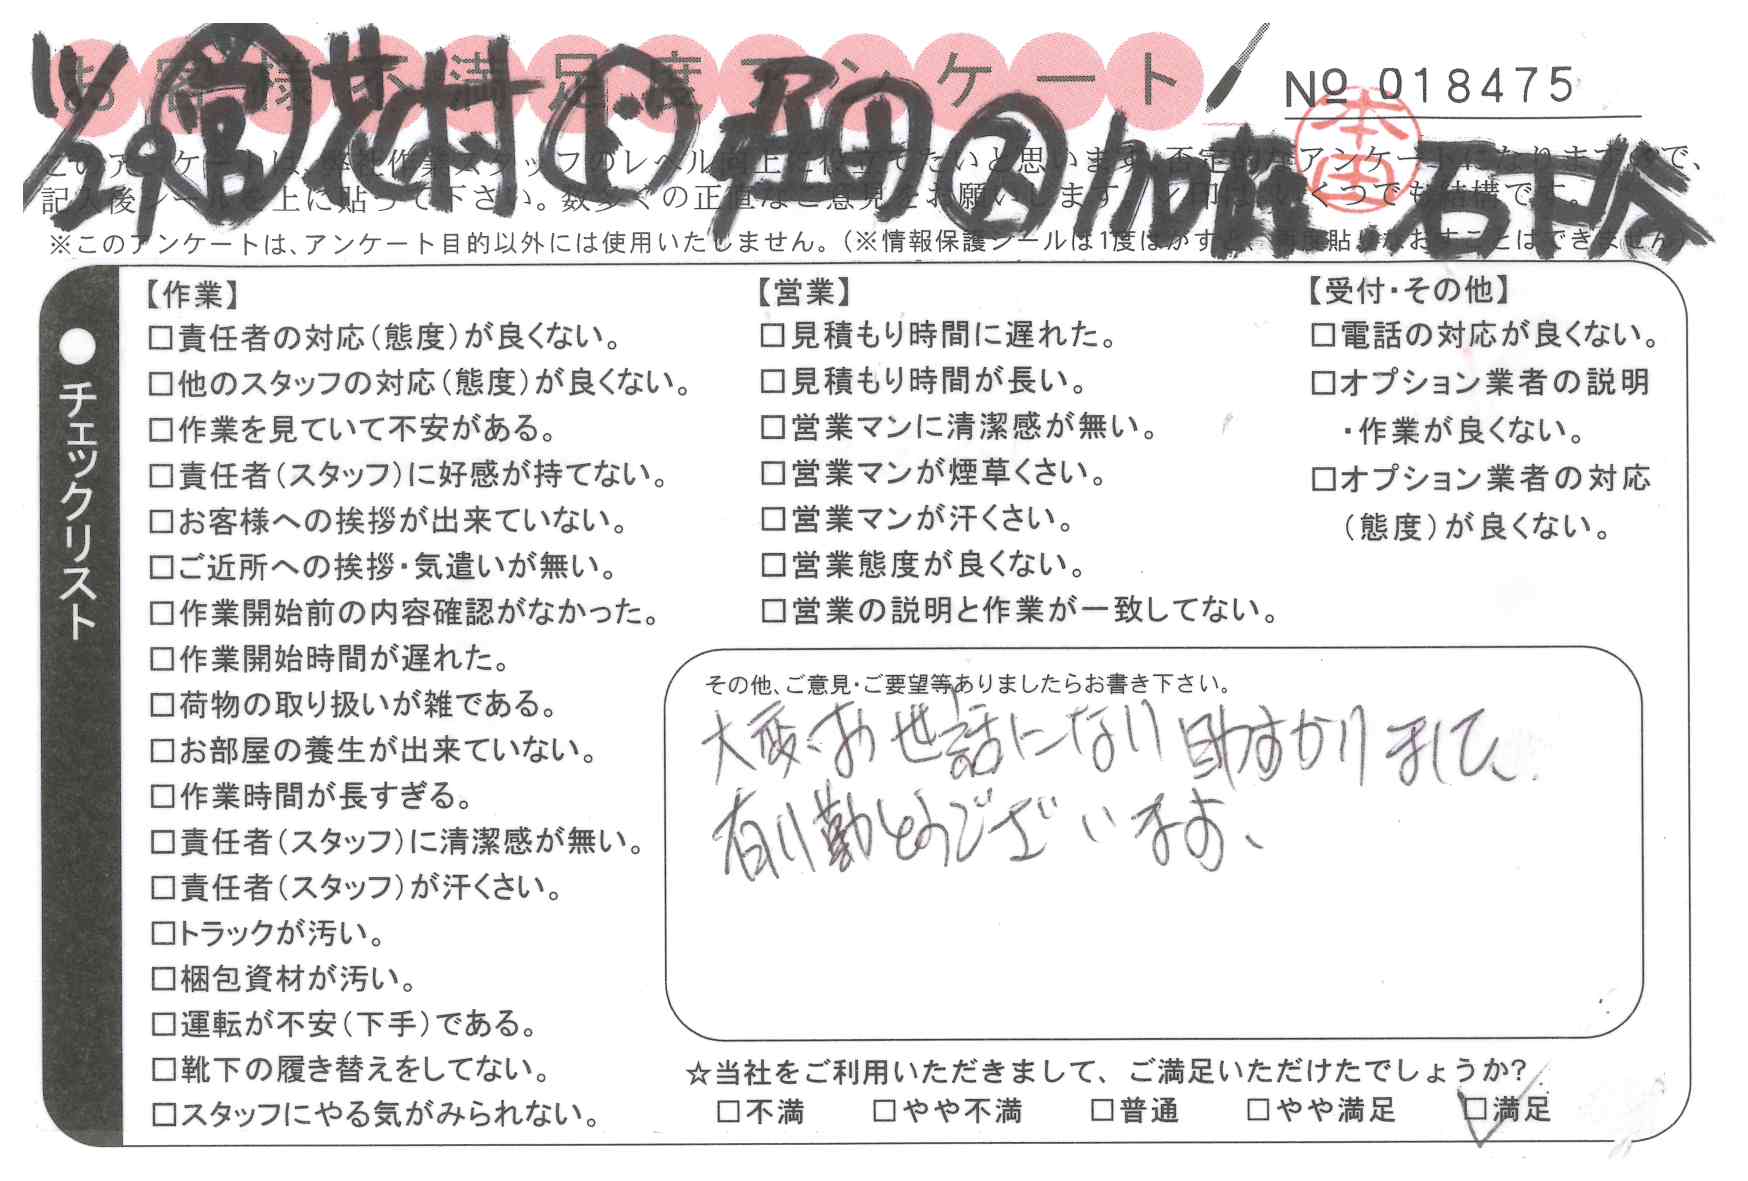 お客様不満足度アンケート
11/29 営 花村 ド 堀田 ス 加設 石下谷
№ 018475
本田
このアンケートは、弊社作業スタッフのレベル向上に役立てたいと思います。不定期なアンケートになりますので、
記入後シールを上に貼って下さい。数多くの正直なご意見をお願いします。レ印はいくつでも結構です。
※このアンケートは、アンケート目的以外には使用いたしません。（※情報保護シールは1度はがすと、再度貼りなおすことはできません）
●チェックリスト
【作業】
□責任者の対応（態度）が良くない。
□他のスタッフの対応（態度）が良くない。
□作業を見ていて不安がある。
□責任者（スタッフ）に好感が持てない。
□お客様への挨拶が出来ていない。
□ご近所への挨拶・気遣いが無い。
□作業開始前の内容確認がなかった。
□作業開始時間が遅れた。
□荷物の取り扱いが雑である。
□お部屋の養生が出来ていない。
□作業時間が長すぎる。
□責任者（スタッフ）に清潔感が無い。
□責任者（スタッフ）が汗くさい。
□トラックが汚い。
□梱包資材が汚い。
□運転が不安（下手）である。
□靴下の履き替えをしてない。
□スタッフにやる気がみられない。
【営業】
□見積もり時間に遅れた。
□見積もり時間が長い。
□営業マンに清潔感が無い。
□営業マンが煙草くさい。
□営業マンが汗くさい。
□営業態度が良くない。
□営業の説明と作業が一致してない。
【受付・その他】
□電話の対応が良くない。
□オプション業者の説明
・作業が良くない。
□オプション業者の対応
（態度）が良くない。
その他、ご意見・ご要望等ありましたらお書き下さい。
大変お世話になり助すかりまして、
有り勤とうございます、
☆当社をご利用いただきまして、ご満足いただけたでしょうか?
□不満 □やや不満 □普通 □やや満足 ☑満足